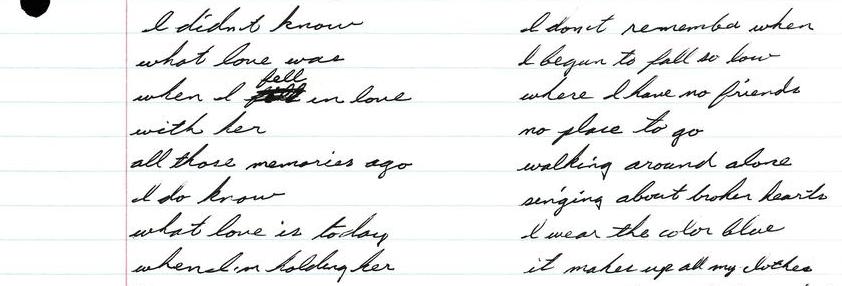 I didn't know
what love was
when I fell in love
with her
all those memories ago
I do know
what love is today
when I'm holding her
I don't remember when
I begun to fall so low
where I have no friends
no place to go
walking around alone
singing about broken hearts
I wear the color blue
it makes up all my clothes